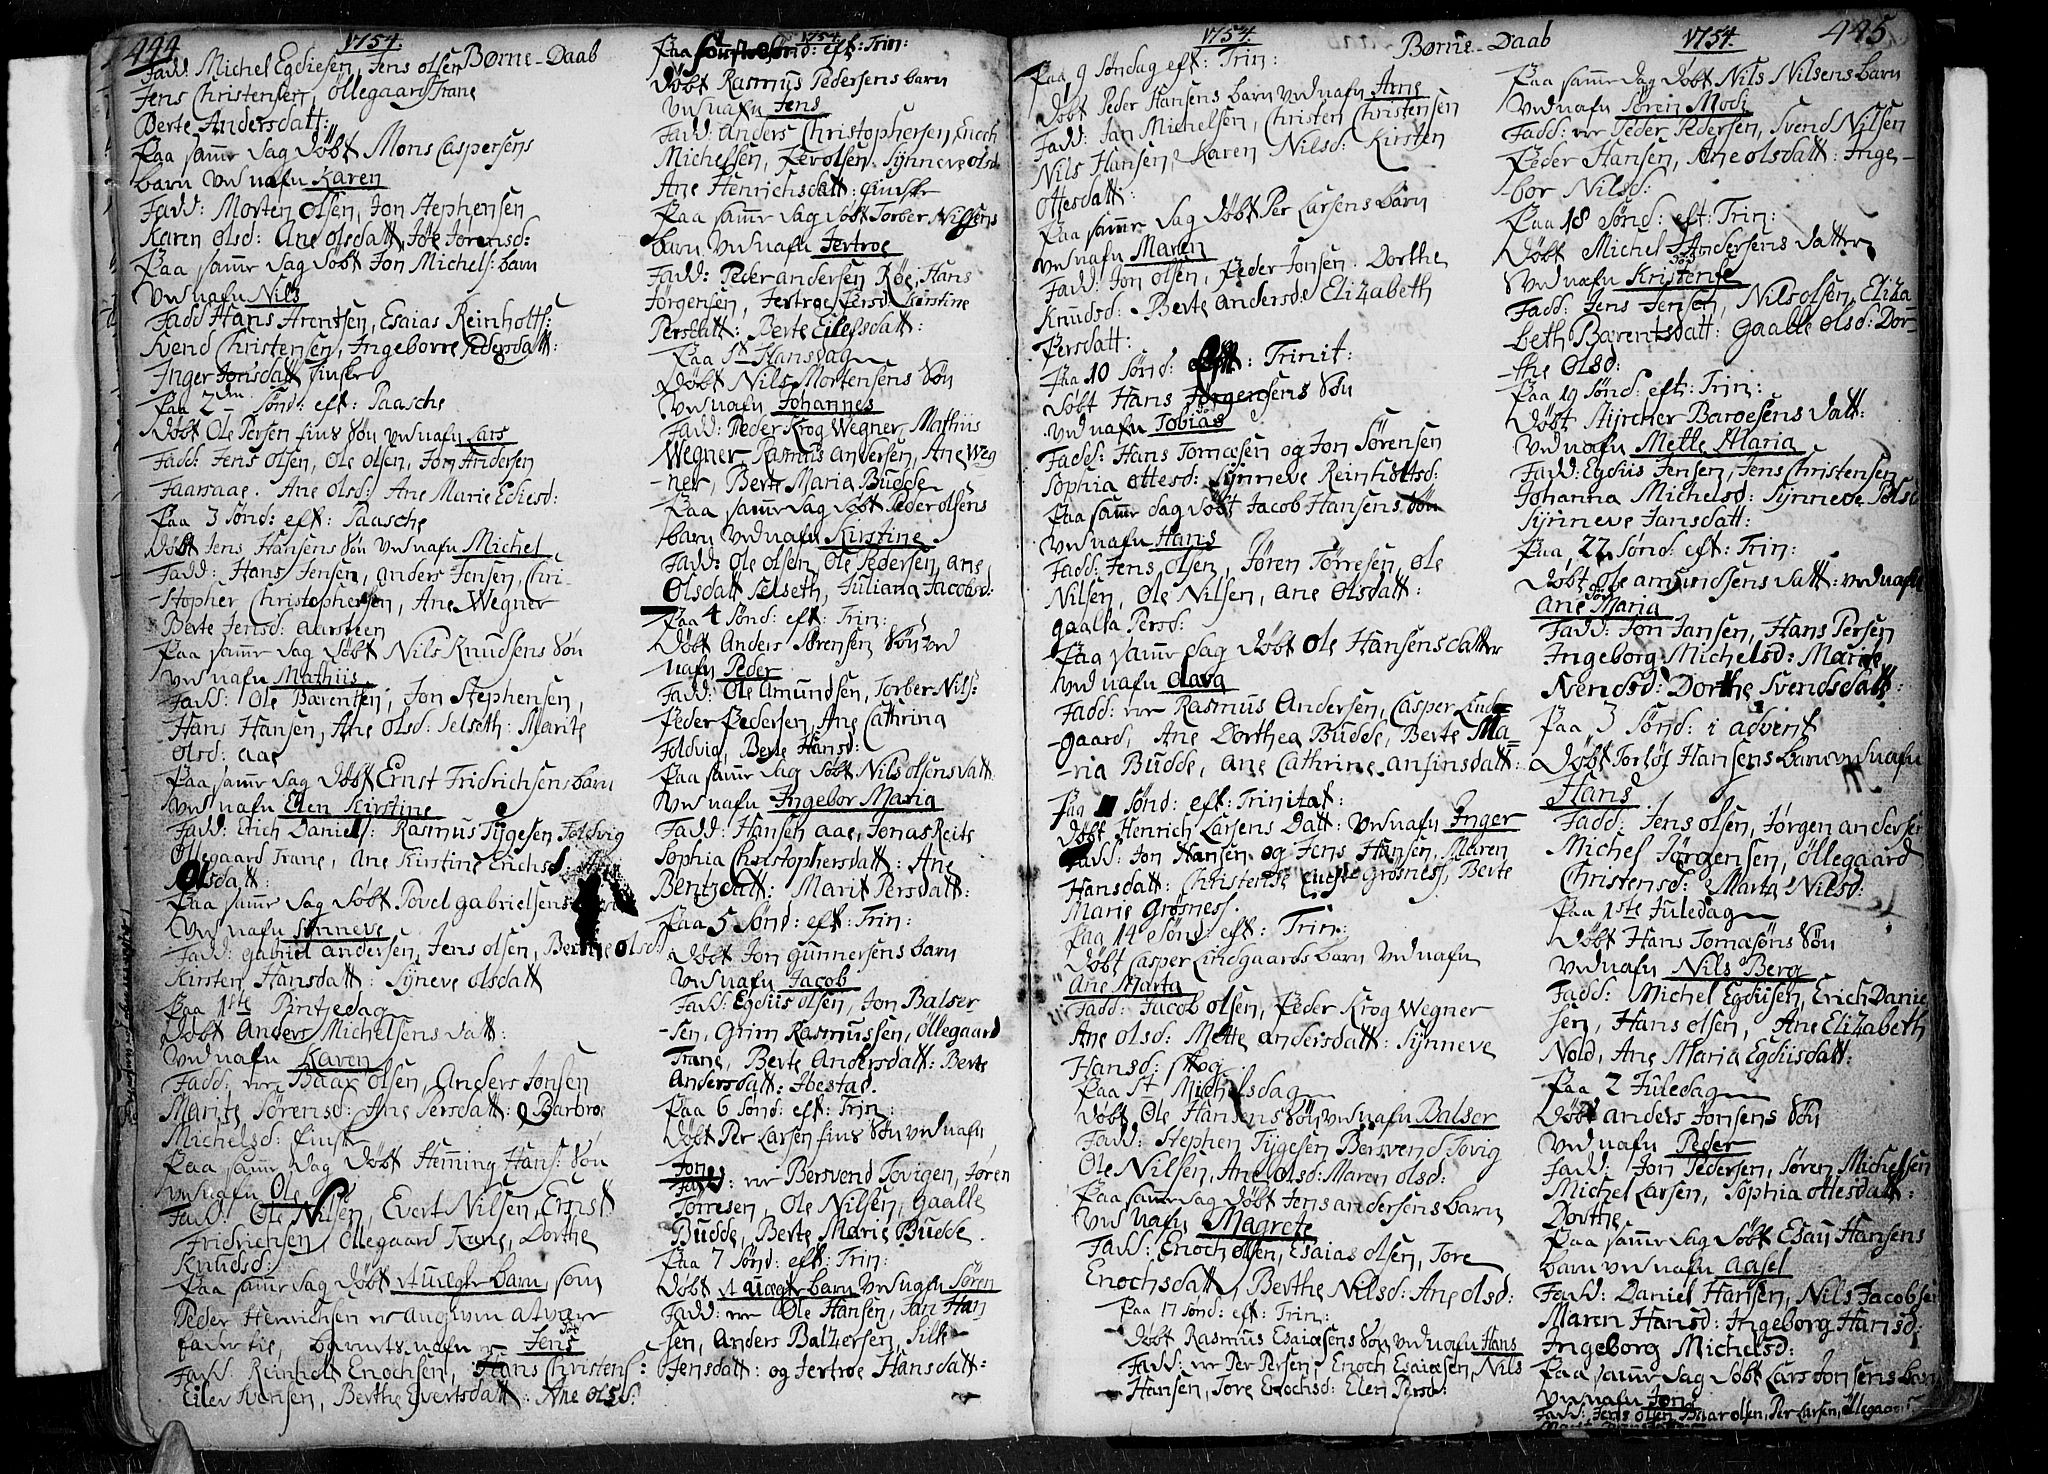 444
1754.
Børne-Daab
Fadd: Michel Egdiesen, Jens olsen
Jens Christensen, Öllegaard Trane
Berte Andersdatt:
Paa samme dag døbt Mons Caspersens
barn ved nafn Karen
Fadd: Morten Olsen, Jon Stephensen
Karen olsd: Ane olsdatt, Jørensd:
Paa samme dag døbt Jon Michels: barn
ved nafn Nils
Fadd Hans Arentsen, Esaias Reinholts:
Svend Christensen, Ingeborre Pedersdatt:
Inger Jonsdatt
Paa 2den Sønd: eft: Paasche
Døbt Ole Persen Søn ved nafn Lars
Fadd: Jens olsen, Ole olsen, Jon Andersen
Faarsaae. Ane olsd: Ane Marie Ediesd:
Paa 3 Sønd: eft: Paasche
Døbt Jens Hansens Søn ved nafn Michel
Fadd: Hans Jensen, anders Jensen, Chri-
-stopher Christophersen, Ane Wegner
Berte Jensd: aarsteen
Paa samme dag døbt Nils Knudsens Søn
ved nafn Mathiis
Fadd: Ole Barentsen, Jon Stephensen,
Hans Hansen, Ane olsd: Selseth: Marite
olsd: aae
Paa samme dag døbt Ernst Fridrichsens barn
ved nafn Elen Kirstine
Fadd: Erich Daniels: Rasmus Tygesen Foldvig
Öllegaard Trane, Ane Kirstine Erichsd
Olsdatt:
Paa samme dag døbt Povel gabrielsens
ved nafn Synneve
Fadd: gabriel andersen, Jens olsen, olsd:
Kirsten Hansdatt: Syneve olsdatt
Paa 1ste Pintzedag
Døbt Anders Michelsens datt:
ved nafn Karen
Fadd: Baar olsen, Anders Jonsen
Marite Sørensd: Ane Persdatt: Barbroe
Michelsd:
Paa samme dag døbt Hemming Hans: Søn
ved nafn Ole
Fadd: Ole Nilsen, Evert Nilsen, Ernst
Fridrichsen, Öllegaard Trane, Dorthe
Knudsd:
Paa samme dag døbt et uægte barn, som
Peder Henrichsen er angiven at være
fader til, barnets nafn Jens
Fadd: Reinholt Enochsen, Hans Christens:
Eilev Evensen, Berthe Evertsdatt: Ane olsd:
1754.
Paa Sønd: eft: Trin:
Døbt Rasmus Pedersens barn
ved nafn Jens
Fadd: Anders Christophersen, Enoch
Michelsen, Per olsen. Synneve olsd:
Ane Henrichsdatt:
Paa samme dag døbt Torber Nilsens
barn ved nafn Jertroe
Fadd: Peder andersen Røe, Hans
Jörgensen, Jertroe Persd: Kirstine
Persdatt: Berte Eilefsdatt:
Paa St Hansdag
Døbt Nils Mortensens Søn
ved nafn Johannes
Fadd: Peder Krog Wegner, Mathiis
Wegner, Rasmus andersen, Ane Weg
-ner, Berte Maria Budde
Paa samme dag døbt Peder olsens
barn ved nafn Kirstine
Fadd: Ole olsen, Ole Pedersen, ane
Olsdatt Selseth, Juliana Jacobsd:
Paa 4 Sønd: eft: Trin:
Døbt Anders Sørensen Søn ved
nafn Peder
Fadd: Ole Amundsen, Torber Nils:
Peder Pedersen, Ane Cathrina
Foldvig, Berte Hansd:
Paa samme dag døbt Nils olsens datt:
ved nafn Ingebor Maria
Fadd: Hansen aae, Jonas Reits
Sophia Christophersdatt: Ane
Bentzdatt: Marit Persdatt:
Paa 5 Sønd: eft: Trin:
Døbt Jon Gunnersens barn
ved nafn Jacob
Fadd: Egdiis olsen, Jon Balser
-sen, Grim Rasmussen, Öllegaard
Trane, Berte Andersdatt: Berte
Andersdatt: Ibestad.
Paa 6 Sønd: eft: Trin:
Døbt Per Larsen Søn ved nafn
Jon
Fadd: Bersvend Tovigen, Jøren
Torresen, Ole Nilsen, Gaalle
Budde, Berte Marie Budde.
Paa 7 Sønd: eft: Trin:
Døbt et uægte barn ved nafn Søren
Fadd: Ole Hansen, Jan Han
sen, Anders Balzersen, Sille-
Jensdatt: og Jertroe Hansdatt:
1754.
Børne-Daab
Paa 9 Søndag eft: Trin:
Døbt Peder Hansens barn ved nafn Arne
Fadd: Jan Michelsen, Christen Christensen
Nils Hansen, Karen Nilsd: Kirsten
Ottesdatt:
Paa samme dag døbt Per Larsens barn
ved nafn Maren
Fadd: Jon olsen, Peder Jonsen. Dorthe
Knudsd: Berte andersd: Elizabeth
Persdatt:
Paa 10 Sønd: Eft: Trinit:
Døbt Hans Jørgensens Søn
ved nafn Tobias
Fadd: Hans Tomæsen og Jon Sörensen
Sophia ottesd: Synneve Reinholtsd:
Paa samme dag døbt Jacob Hansens Søn
ved nafn Hans
Fadd: Jens Olsen, Jören Törresen, Ole
Nilsen, Ole Nilsen, Ane Olsdatt:
gaalla Persd:
Paa samme dag døbt Ole Hansens datter
ved nafn Olava
Fadd: Rasmus Andersen, Casper Lind-
-gaard, Ane Dorthea Budde, Berte Ma-
-ria Budde, Ane Cathrine anfinsdatt:
Paa 11 Sønd: eft: Trinitat:
Døbt Henrich Larsens Datt: ved nafn Inger
Fadd: Jon Hansen og Jens Hansen, Maren
Hansdatt: Christense Grøsness, Berte
Marie Grøsness
Paa 14 Sønd: eft: Trin:
Døbt Casper Lindgaards barn ved nafn
Ane Marta
Fadd: Jacob olsen, Peder Krog Wegner
Ane olsd: Mette andersdatt: Synneve
Hansd: Skog
Paa St Michelsdag
Døbt Ole Hansens Søn ved nafn Balser
Fadd: Stephen Tygesen Bersvend Tovig
Ole Nilsen, Ane olsd: Maren olsd:
Paa samme dag døbt Jens andersens barn
ved nafn Magrete
Fadd: Enoch olsen, Esaias olsen, Tore
Enochsdatt, Berthe Nilsd: Ane olsd:
Paa 17 Sønd: eft: Trin:
Døbt Rasmus Esaiæsens Søn ved nafn Hans
Fadd: Per Persen, Enoch Esaiæsen, Nils
Hansen, Tore Enochsd: Elen Persd:
1754.
445
Paa samme dag døbt Nils Nilsens barn
ved nafn Søren Modi
Fadd: Peder Pedersen, Svend Nilsen
Peder Hansen, Ane olsdatt: Inge-
-bor Nilsd:
Paa 18 Sønd: eft: Trin:
Døbt Michel Andersens datter
ved nafn Kristense
Fadd: Jens Jensen, Nils olsen, Eliza
-beth Barentsdatt: Gaalle olsd: Dor-
-the Olsd:
Paa 19 Sønd: eft: Trin:
Døbt Styrcher Baroesens datt:
ved nafn Mette Maria
Fadd: Egdiis Jensen, Jens Christensen
Johanna Michelsd: Synneve
Synneve Jansdatt:
Paa 22 Sønd: eft: Trin:
Døbt ole amundsens datt: ved nafn
Ane Maria
Fadd: Jon Jansen, Hans Persen
Ingeborg Michelsd: Marite
Svendsd: Dorthe Svendsdatt:
Paa 3 Sønd: i advent
Døbt Torløf Hansens barn ved nafn
Hans
Fadd: Jens olsen, Jørgen andersen
Michel Jørgensen, Öllegaard
Christensd: Marta Nilsd:
Paa 1ste Juledag
Døbt Hans Tomæsöns Søn
ved nafn Nils Berg
Fadd: Michel Egdiisen, Erich Danie
sen, Hans olsen, Ane Elizabeth
Nold, Ane Maria Egdiisdatt:
Paa 2 Juledag
Døbt anders Jonsens Søn
ved nafn Peder
Fadd: Jon Pedersen, Søren Michelsen
Michel Larsen, Sophia ottesdatt:
Dorthe
Paa samme dag døbt Esaij Hansens
barn ved nafn aasel
Fadd: Daniel Hansen, Nils Jacobsen
Maren Hansd: Ingeborg Hansd:
Ingeborg Michelsd:
Paa samme dag døbt Lars Jonsens barn
ved nafn Jon
Fadd: Jens olsen Baar olsen, Per Larsen, Öllegaard